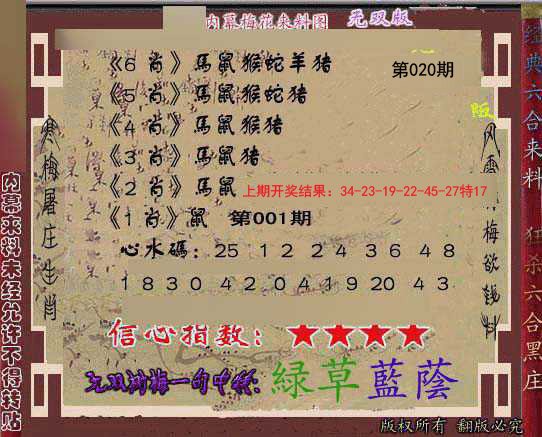 内幕梅花来料图 无双版
《6 肖》馬鼠猴蛇羊猪
第020期
《5 肖》馬鼠猴蛇猪
《4 肖》馬鼠猴猪
《3 肖》馬鼠猪
《2 肖》馬鼠
上期开奖结果：34-23-19-22-45-27特17
《1 肖》鼠 第001期
心水碼：25 12 24 36 48
18 30 42 04 19 20 43
信心指数：★★★★
一句中特：綠草藍蔭
版权所有 翻版必究
寒梅屠庄生肖
梅欲
经典六合来料 狂杀六合黑庄
内幕来料未经允许不得转贴